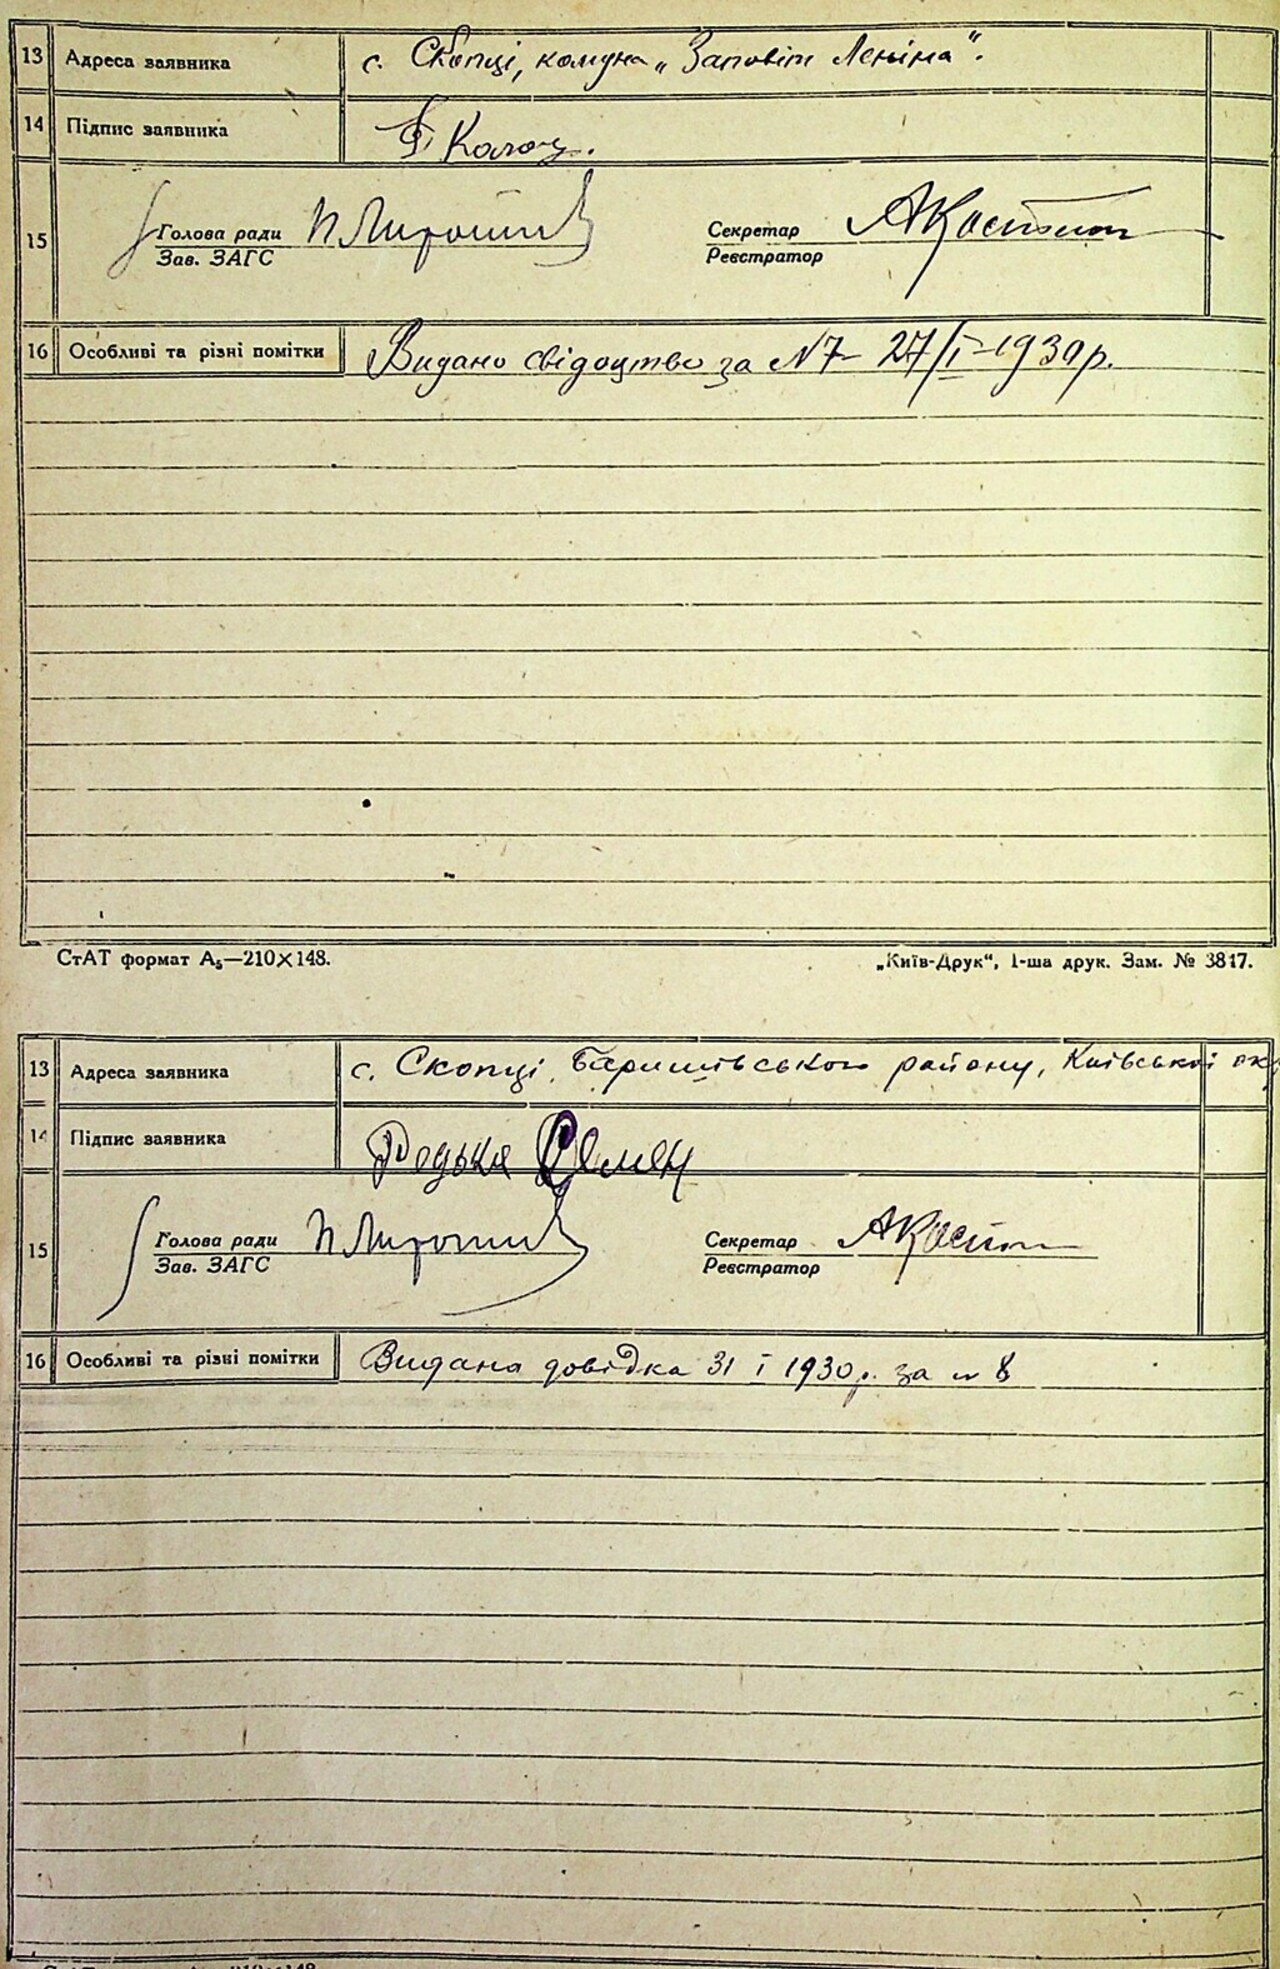 13 Адреса заявника с. Скопці, комуна „Заповіт Леніна“.
14 Підпис заявника
15 Голова ради Секретар
Зав. ЗАГС Реєстратор
16 Особливі та різні помітки Видано свідоцтво за N 7 27/I-1930р.
СтАТ формат А₅—210×148. „Київ-Друк“, 1-ша друк. Зам. № 3817.
13 Адреса заявника с. Скопці, Баришівського району, Київської окр
14 Підпис заявника Родька Семен
15 Голова ради Секретар
Зав. ЗАГС Реєстратор
16 Особливі та різні помітки Видана довідка 31 I 1930р. за N 8